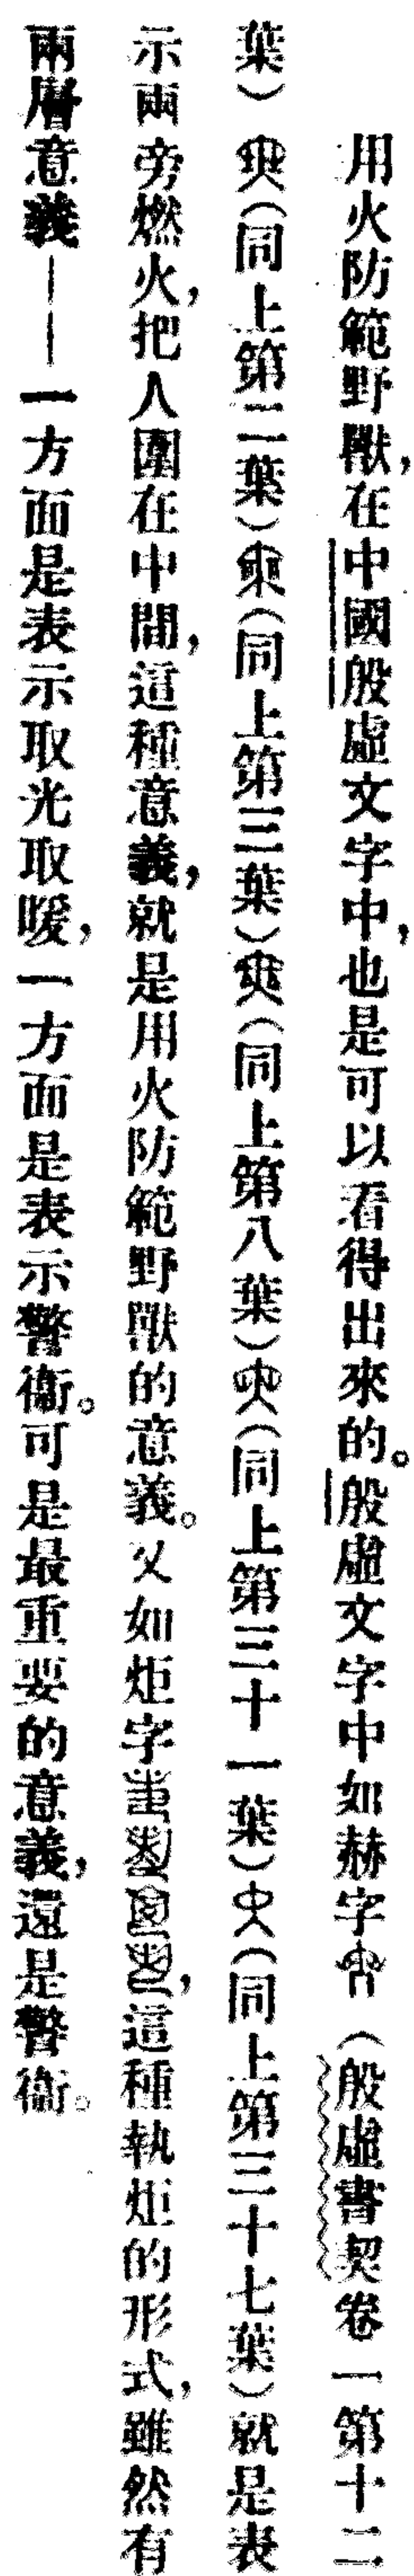 用火防範野獸，在中國殷虛文字中，也是可以看得出來的。殷虛文字中如赫字（殷虛書契卷一第十二
葉）（同上第二葉）（同上第三葉）（同上第八葉）（同上第三十一葉）（同上第三十七葉）就是表
示兩旁燃火，把人圍在中間，這種意義，就是用火防範野獸的意義。又如炬字，這種執炬的形式，雖然有
兩層意義——一方面是表示取光取暖，一方面是表示警衞。可是最重要的意義，還是警衞。